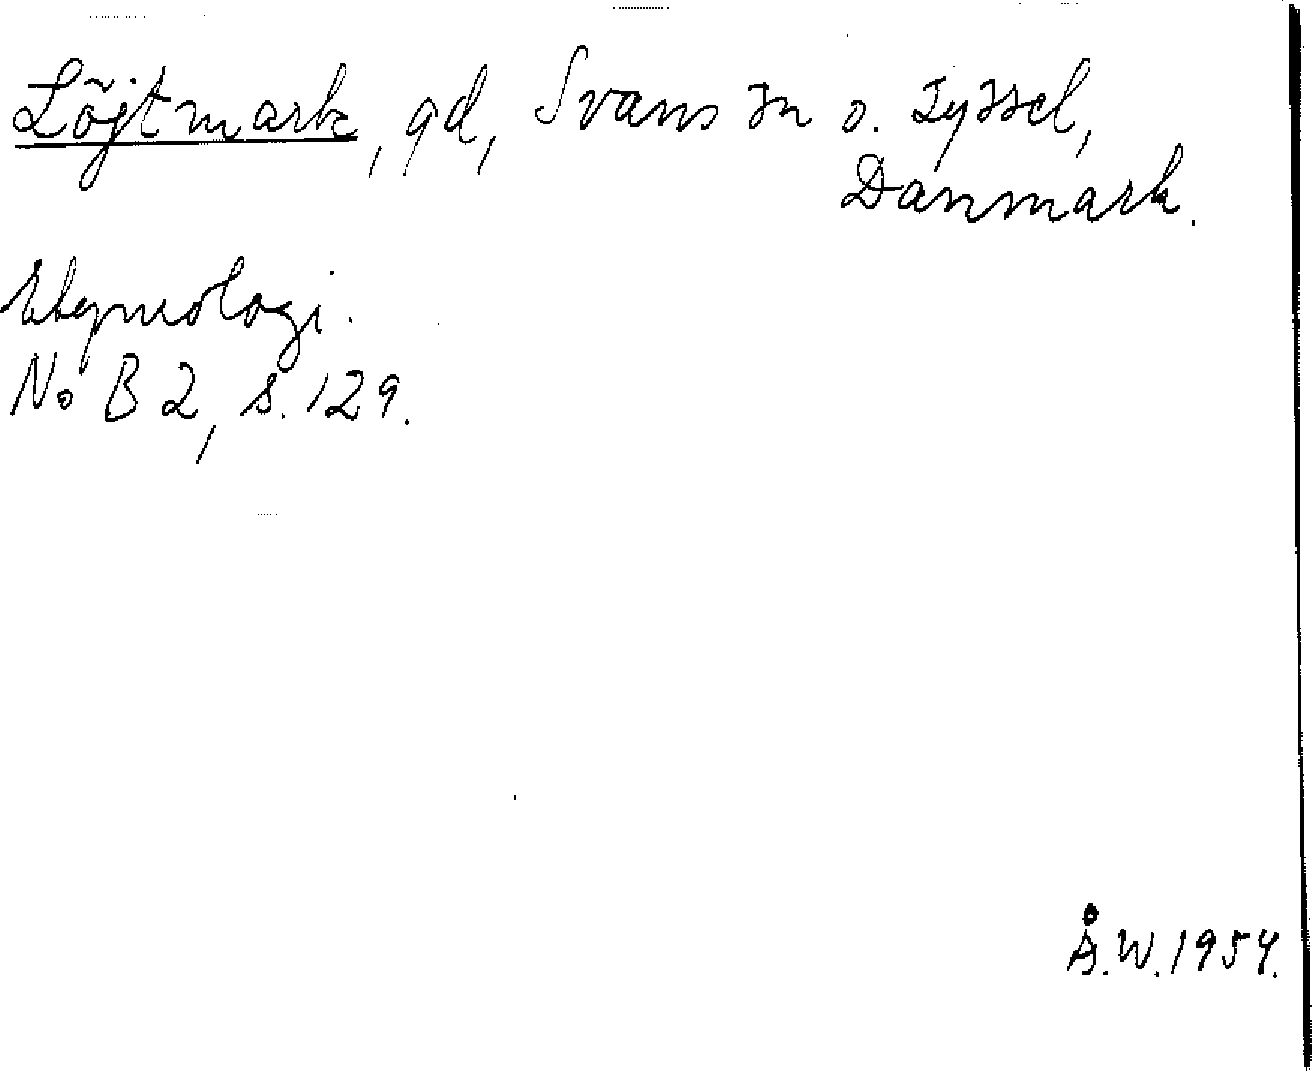 Löjtmark, gd, Svans sn o. syssel,
Danmark.
Etymologi.
No B 2, s. 129.
Å.W. 1954.